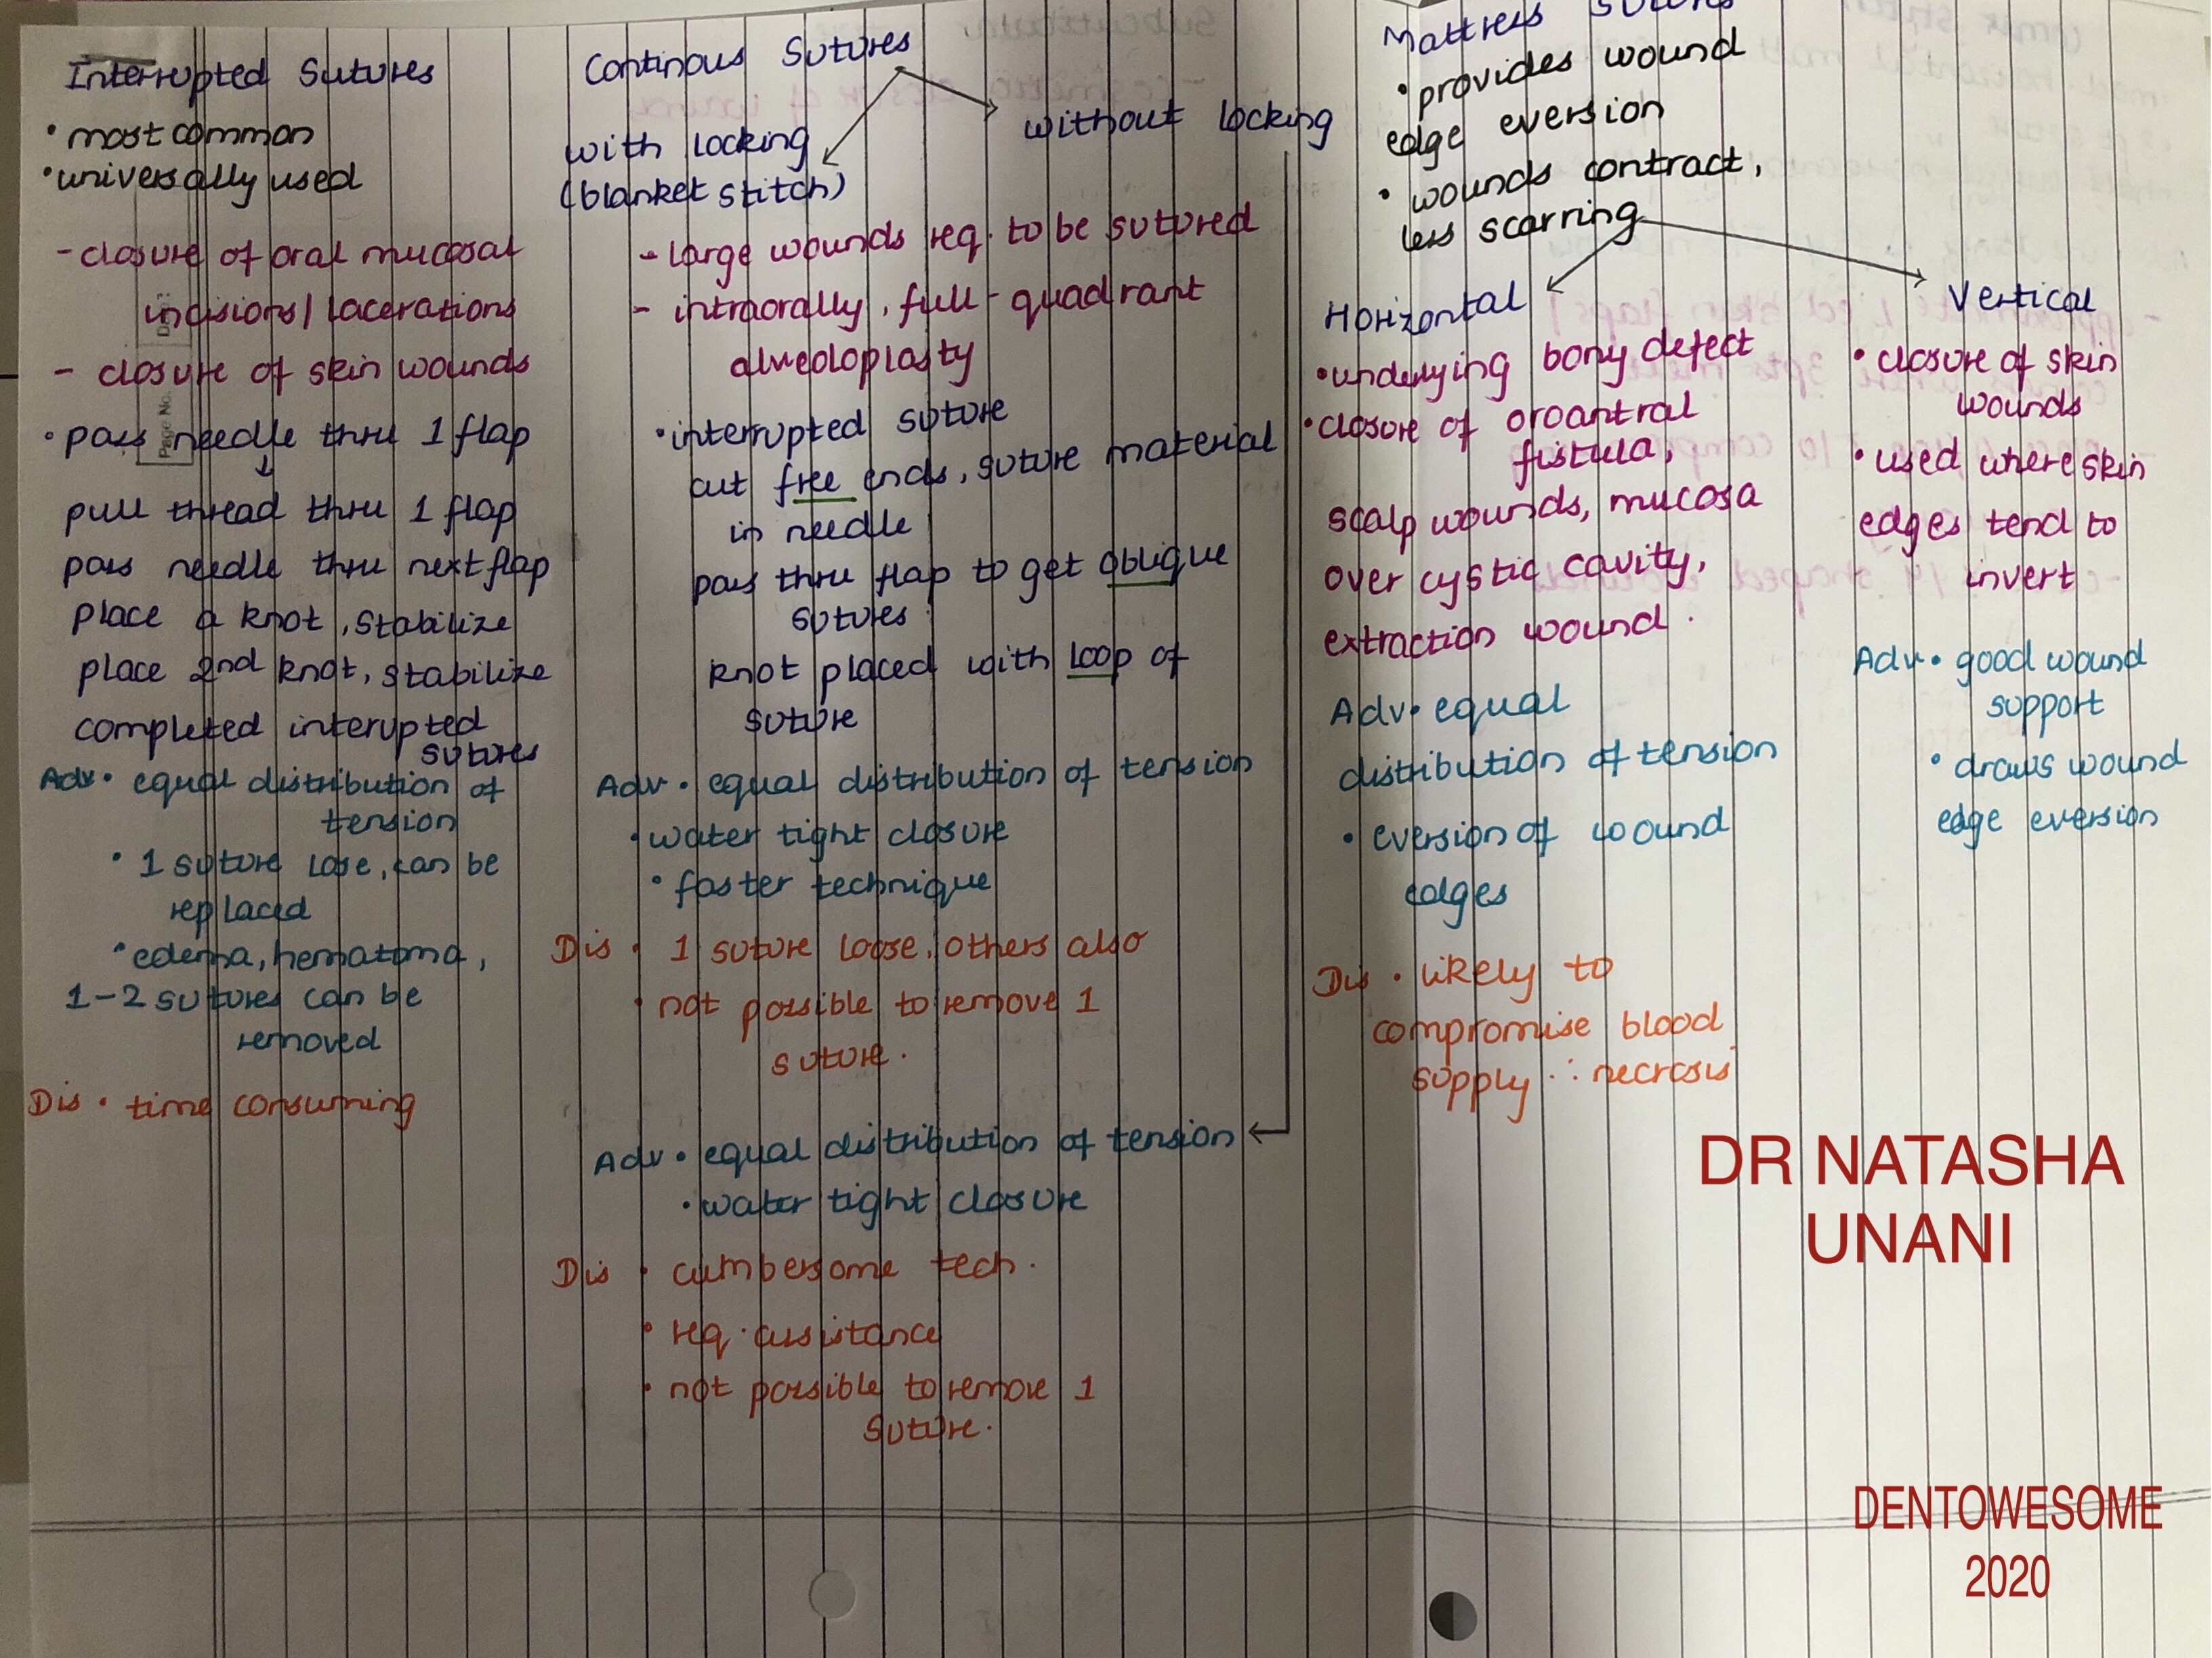 Interrupted Sutures
• most common
• universally used
- closure of oral mucosal
incisions/lacerations
- closure of skin wounds
• pass needle thru 1 flap
↓
pull thread thru 1 flap
pass needle thru next flap
place a knot, stabilize
place 2nd knot, stabilize
completed interupted
sutures
Adv • equal distribution of
tension
• 1 suture lose, can be
replaced
• edema, hematoma,
1-2 sutures can be
removed
Dis • time consuming
Continous Sutures
with locking
(blanket stitch)
without locking
- large wounds req. to be sutured
- intraorally, full-quadrant
alveoloplasty
• interrupted suture
cut free ends, suture material
in needle
pass thru flap to get oblique
sutures
knot placed with loop of
suture
Adv • equal distribution of tension
• water tight closure
• faster technique
Dis • 1 suture loose, others also
• not possible to remove 1
suture.
Adv • equal distribution of tension
• water tight closure
Dis • cumbersome tech.
• req. assistance
• not possible to remove 1
suture.
Mattress Sutures
• provides wound
edge eversion
• wounds contract,
less scarring
Horizontal
• underlying bony defect
• closure of oroantral
fistula,
scalp wounds, mucosa
over cystic cavity,
extraction wound.
Adv • equal
distribution of tension
• eversion of wound
edges
Dis • likely to
compromise blood
supply ∴ necrosis
Vertical
• closure of skin
wounds
• used where skin
edges tend to
invert
Adv • good wound
support
• draws wound
edge eversion
Page No.
DR NATASHA
UNANI
DENTOWESOME
2020